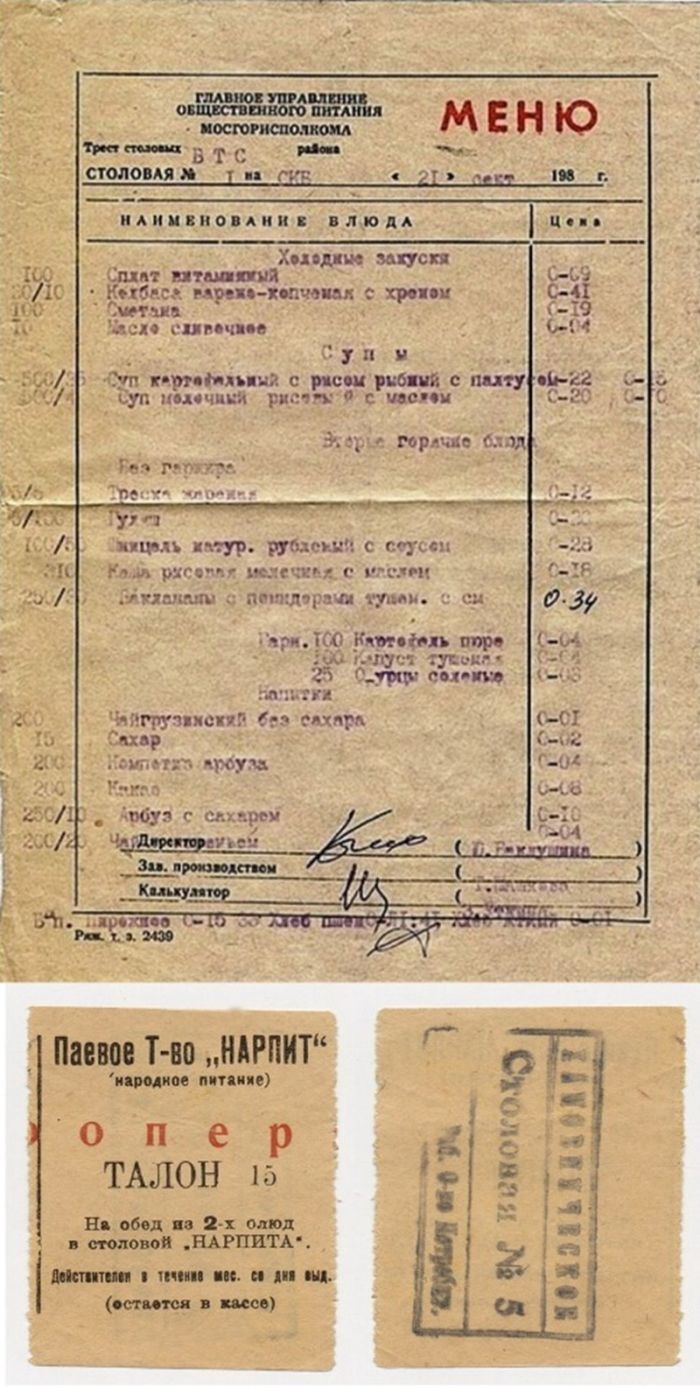 ГЛАВНОЕ УПРАВЛЕНИЕ
ОБЩЕСТВЕННОГО ПИТАНИЯ
МОСГОРИСПОЛКОМА
МЕНЮ
Трест столовых ВТС района
СТОЛОВАЯ № I на СКБ « 21 » сент 198 г.
НАИМЕНОВАНИЕ БЛЮДА Цена
Холодные закуски
100 Сплат витаминный 0-09
30/10 Колбаса варено-копченая с хреном 0-41
100 Сметана 0-19
10 Масло сливочное 0-04
Супы
500/35 Суп картофельный с рисом рыбный с палтусом 0-22
Суп молочный рисовый с маслом 0-20
Вторые горячие блюда
Без гарнира
Треска жареная 0-12
Гуляш
100/50 Шницель натур. рубленый с соусом 0-28
310 Каша рисовая молочная с маслом 0-18
Баклажаны с помидорами тушен. с см 0.34
Гарн. 100 Картофель пюре 0-04
100 Капуст тушеная 0-04
25 О урцы соленые 0-03
Напитки
200 Чайгрузинский без сахара 0-01
15 Сахар 0-02
200 Компотиз арбуза 0-04
200 Какао 0-08
250/10 Арбуз с сахаром 0-10
200/25 Чай 0-04
Директор
Зав. производством
Калькулятор
Пирожное 0-15 Хлеб 0-01
Ряж. т. з. 2439
Паевое Т-во „НАРПИТ“
(народное питание)
опер
ТАЛОН 15
На обед из 2-х блюд
в столовой „НАРПИТА“.
Действителен в течение мес. со дня выд.
(остается в кассе)
ХАМОВНИЧЕСКОЕ
Столовая № 5
О-во Потребит.